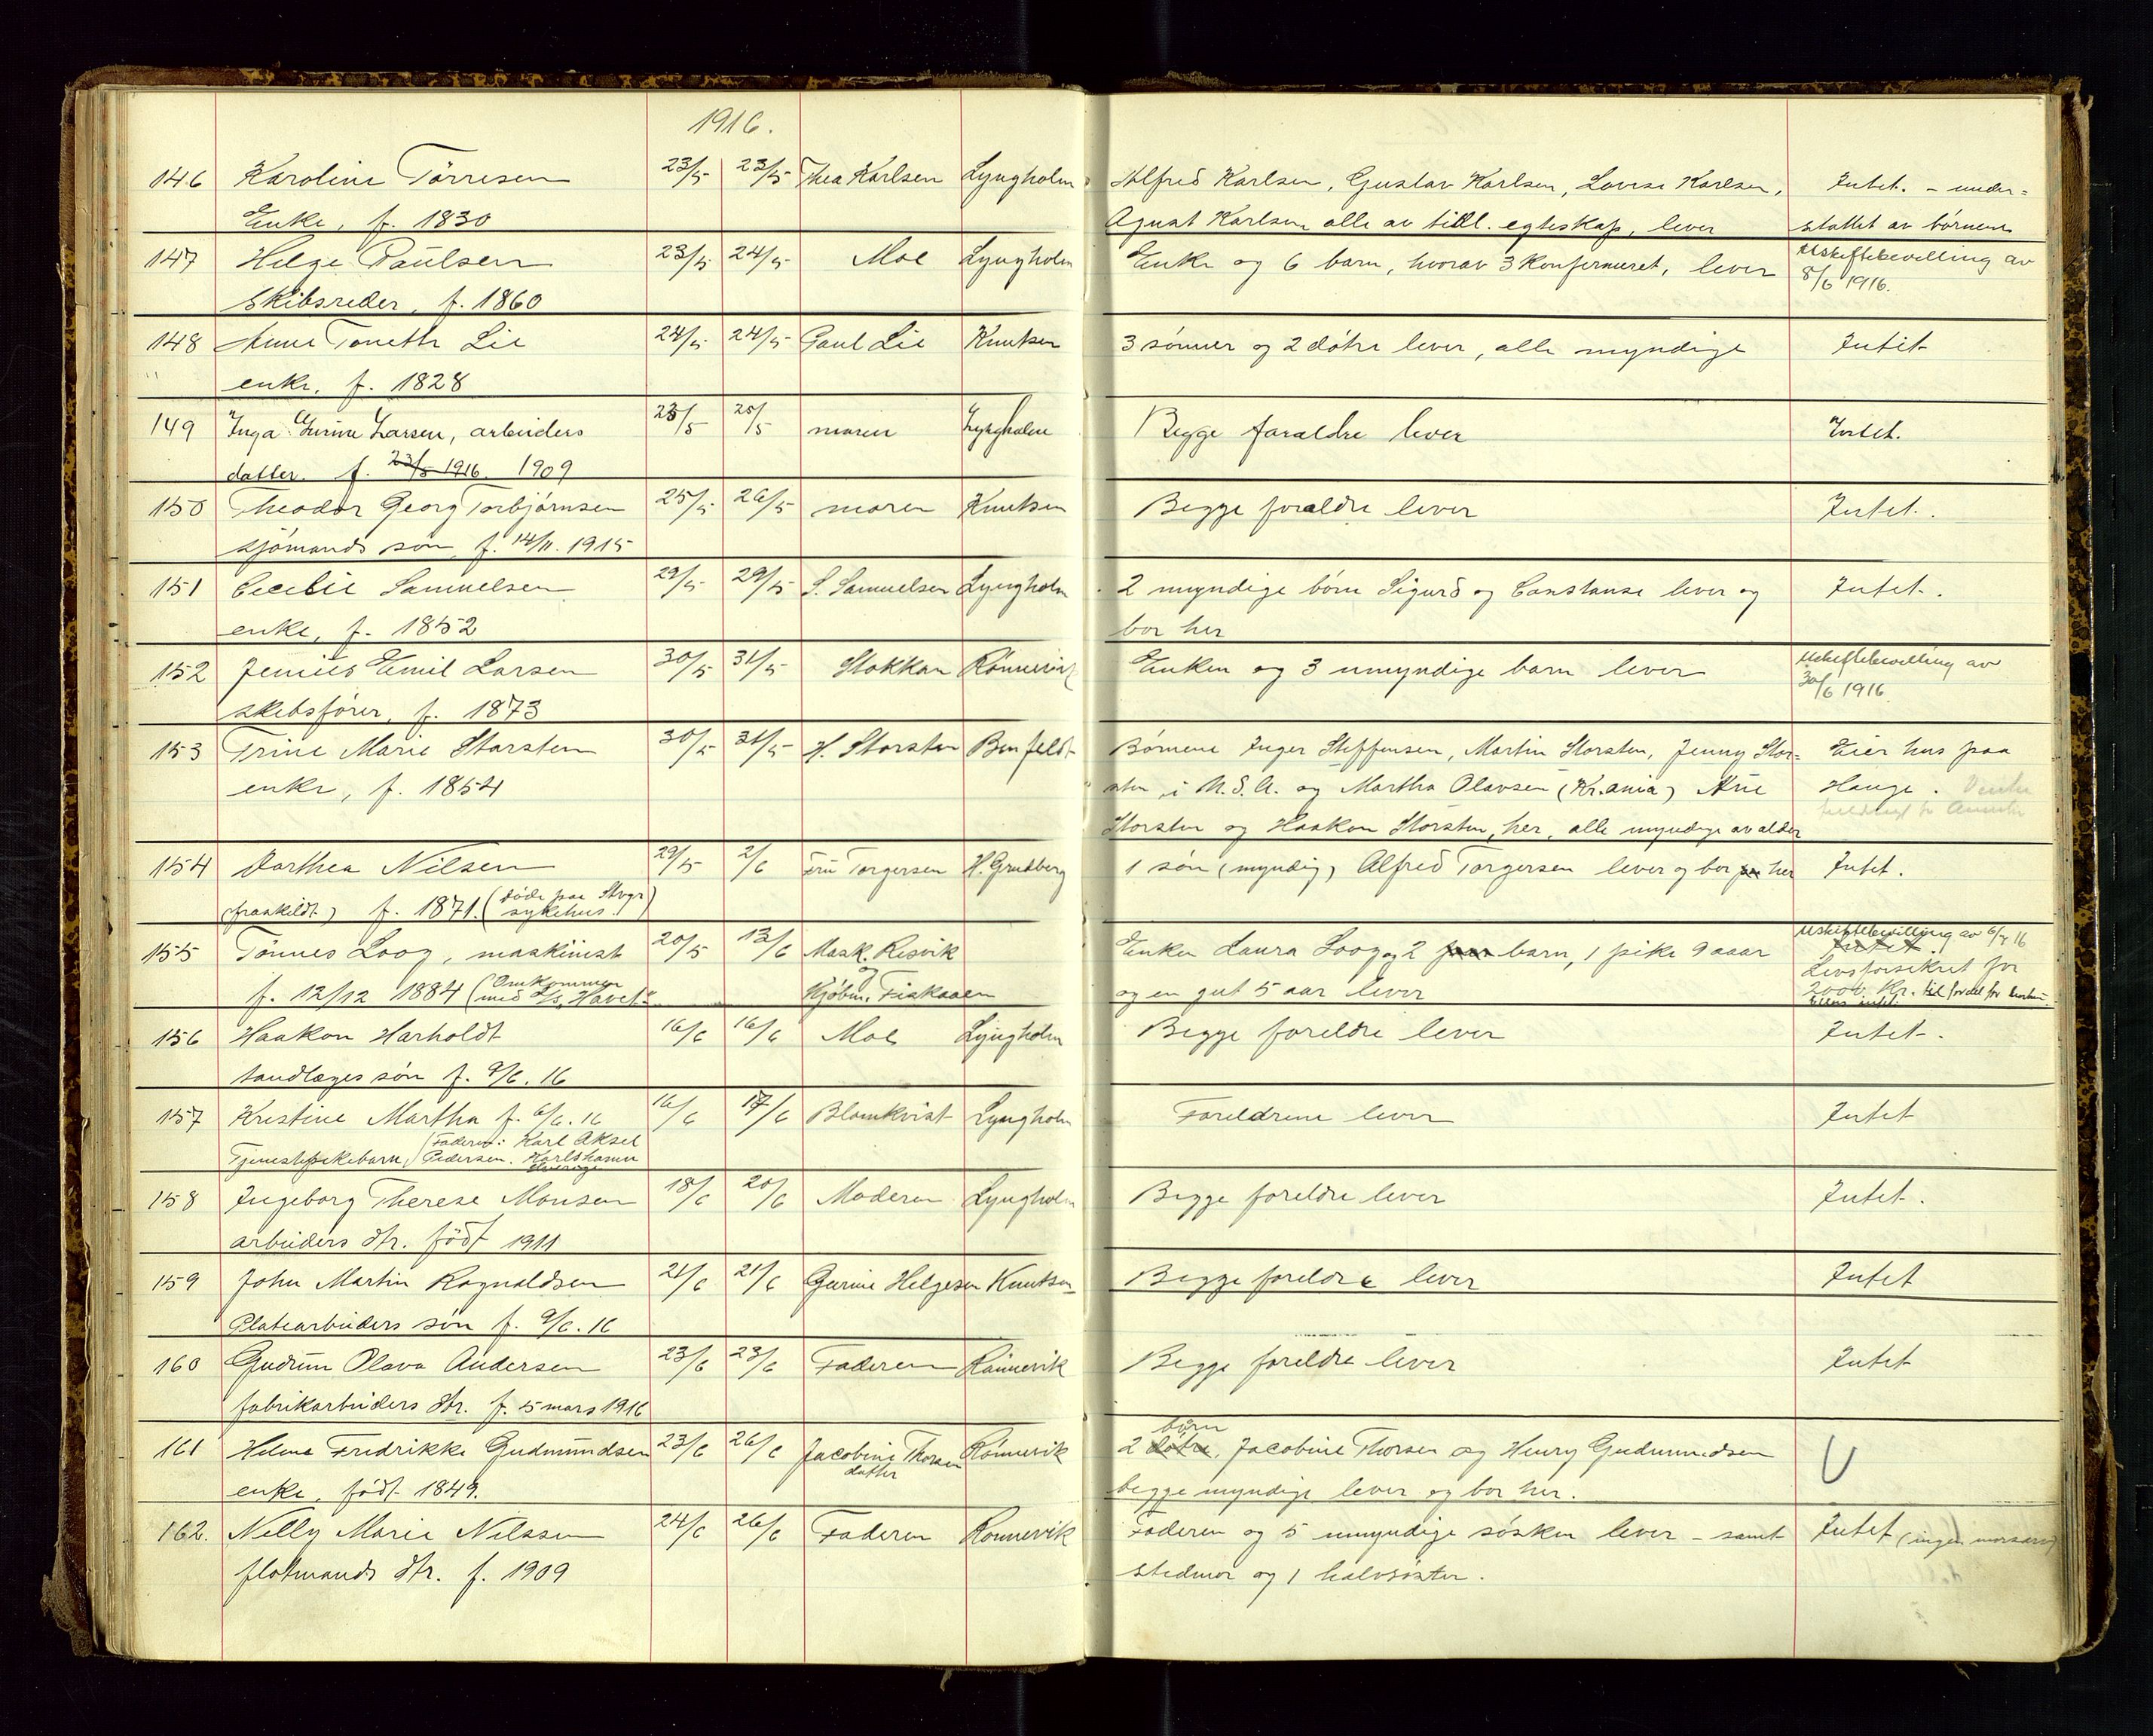 1916.
146 Karoline Törresen 23/5 23/5 Thea Karlsen Lyngholm Alfred Karlsen, Gustav Karlsen, Lovise Karlsen, Intet. – under=
Enke, f. 1830 Agust Karlsen alle av tidl. egteskap, lever støttet av børnene
147 Helge Paulsen 23/5 24/5 Moe Lyngholm Enke og 6 barn, hvorav 3 konfirmeret, lever Uskiftebevilling av
Skibsreder, f. 1860 8/6 1916.
148 Anne Toneth Lie 24/5 24/5 Paul Lie Knutsen 3 sønner og 2 døtre lever, alle myndige Intet
enke, f. 1828
149 Inga Gurine Larsen, arbeiders 23/5 25/5 moren Lyngholm Begge foræeldre lever Intet.
datter. f. 23/5 1916. 1909
150 Theodor Georg Torbjørnsen 25/5 26/5 moren Knutsen Begge forældre lever Intet.
sjømands søn, f. 14/11. 1915
151 Cecelie Samuelsen 29/5 29/5 S. Samuelsen Lyngholm 2 myndige børn Sigurd og Constanse lever og Intet.
enke, f. 1852 bor her
152 Jenius Emil Larsen 30/5 31/5 Stokkan Rönnevik Enken og 3 umyndige barn lever Uskiftebevilling av
skibsfører, f. 1873 30/6 1916
153 Trine Marie Storsten 30/5 31/5 H. Storsten Benfeldt Børnene Inger Steffensen, Martin Storsten, Jenny Stor= Eier hus paa
enke, f. 1854 sten, i U.S.A. og Martha Olavsen (Kr.ania) Hauge.
Storsten og Haakon Storsten, her, alle myndige av alder
154 Dorthea Nilsen 29/5 2/6 Fru Torgersen H. Grudberg 1 søn (myndig) Alfred Torgersen lever og bor her Intet.
(fraskildt) f. 1871. (døde paa Stvgr sykehus.)
155 Tönnes Loog, maskinist 20/5 13/6 Mask. Risvik Enken Laura Loog og 2 barn, 1 pike 9 aaar Uskiftebevilling av 6/7 16
f. 12/12 1884 (Omkommen med S/S "Havet") og Kjøbm. Fiskaaen og en gut 5 aar lever Intet. Livsforsikret for
2000 Kr. til fordel for
156 Haakon Harholdt 16/6 16/6 Moe Lyngholm Begge foreldre lever Intet.
tandlæges søn f. 9/6. 16
157 Kristine Martha f. 6/6. 16 16/6 17/6 Blomkvist Lyngholm Foreldrene lever Intet
Tjenestepikebarn, (Faderen: Karl Aksel Pedersen. Karlshamn
158 Ingeborg Therese Monsen 18/6 20/6 Moderen Lyngholm Begge foreldre lever Intet.
arbeiders dtr. født 1911
159 John Martin Ragnaldsen 21/6 21/6 Gurine Helgesen Knutsen Begge foreldre lever Intet
Platearbeiders søn f. 9/6. 16
160 Gudrun Olava Andersen 23/6 23/6 Faderen Rönnevik Begge foreldre lever Intet
fabrikarbeiders dtr. f. 5 mars 1916
161 Helene Fredrikke Gudmundsen 23/6 26/6 Jacobine Thorsen datter Rönnevik 2 døtre børn, Jacobine Thorsen og Henry Gudmundsen U
enke, født 1849. begge myndige lever og bor her.
162. Nelly Marie Nilssen 24/6 26/6 Faderen Ronnevik Faderen og 5 umyndige søsken lever – samt Intet (ingen morsarv)
flotmands dtr. f. 1909 stedmor og 1 halvsøster.